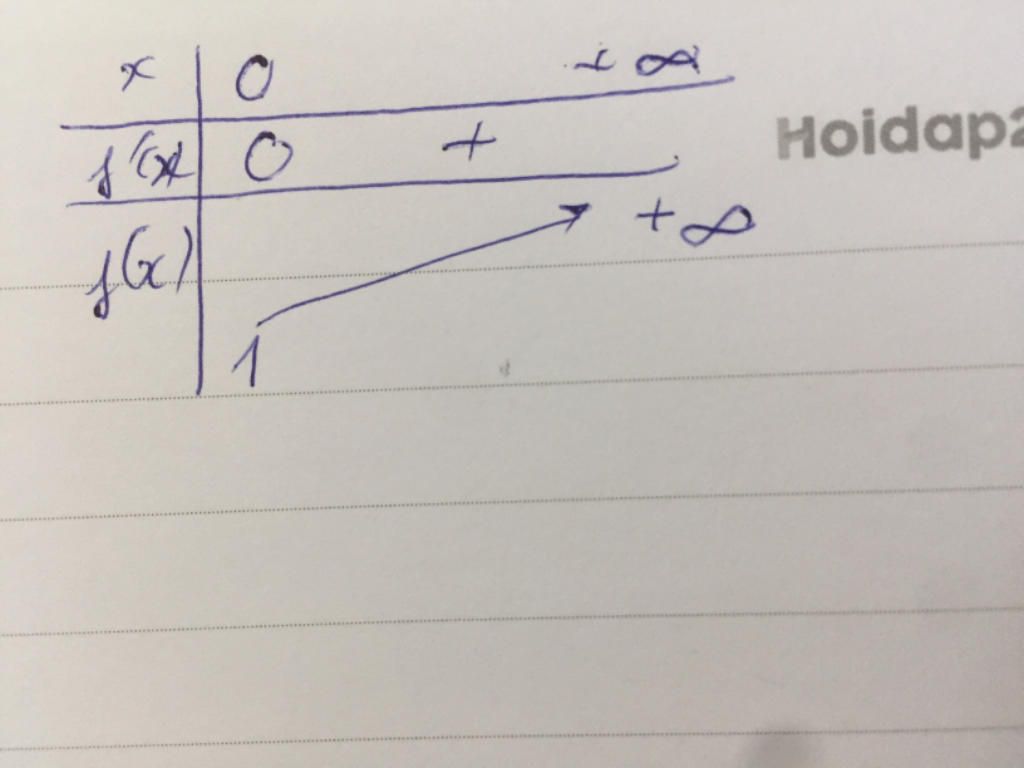 x 0 +∞
f'(x) 0 +
f(x) 1 +∞
Hoidap2